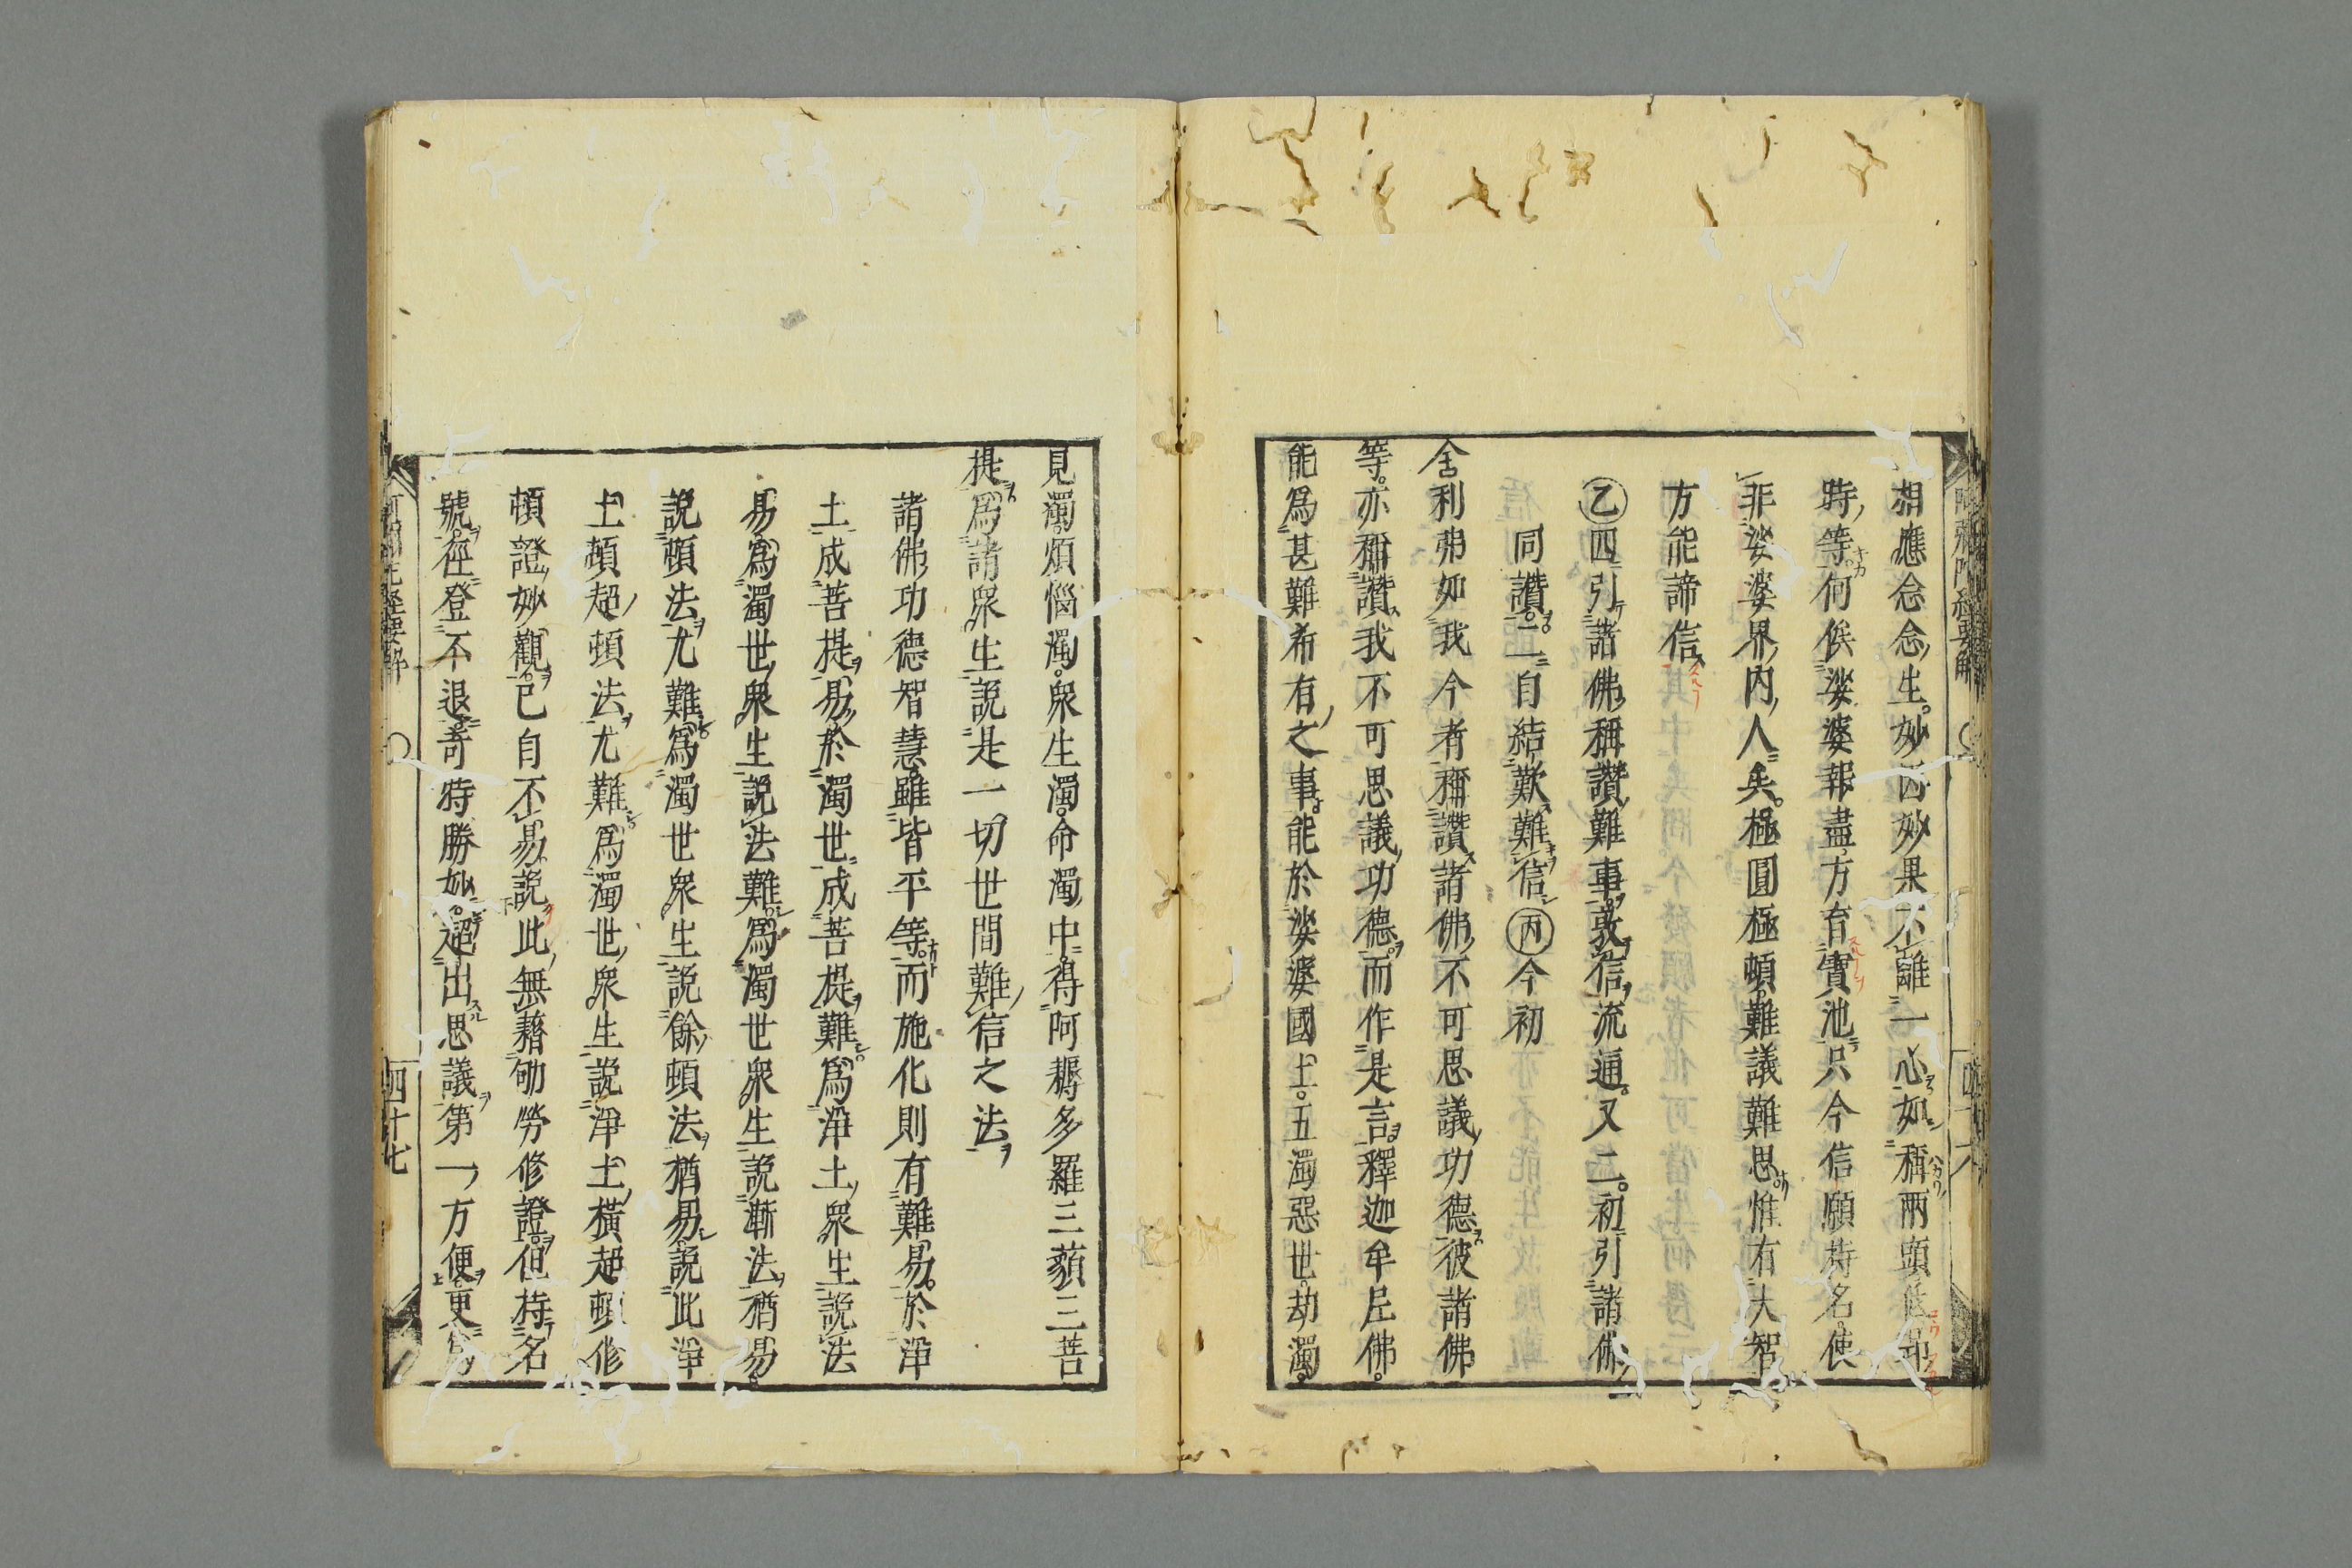 相應念念生妙因妙果不離一心如稱兩頭低昂
時等何俟娑婆報盡方育寶池只今信願持名使
非娑婆界內人矣極圓極頓難議難思惟有大智
方能諦信
乙四引諸佛稱讚難事敦信流通又二初引諸佛
同讚二自結歎難信丙今初
舍利弗如我今者稱讚諸佛不可思議功德彼諸佛
等亦稱讚我不可思議功德而作是言釋迦牟尼佛
能爲甚難希有之事能於娑婆國土五濁惡世劫濁
見濁煩惱濁衆生濁命濁中得阿耨多羅三藐三菩
提爲諸衆生說是一切世間難信之法
諸佛功德智慧雖皆平等而施化則有難易於淨
土成菩提易於濁世成菩提難爲淨土衆生說法
易爲濁世衆生説法難爲濁世衆生說漸法猶易
說頓法尤難爲濁世衆生說餘頓法猶易說此淨
土頓超頓法尤難爲濁世衆生說淨土橫超頓修
頓證妙觀已自不易說此無藉劬勞修證但持名
號徑登不退奇特勝妙超出思議第一方便更爲
四十七